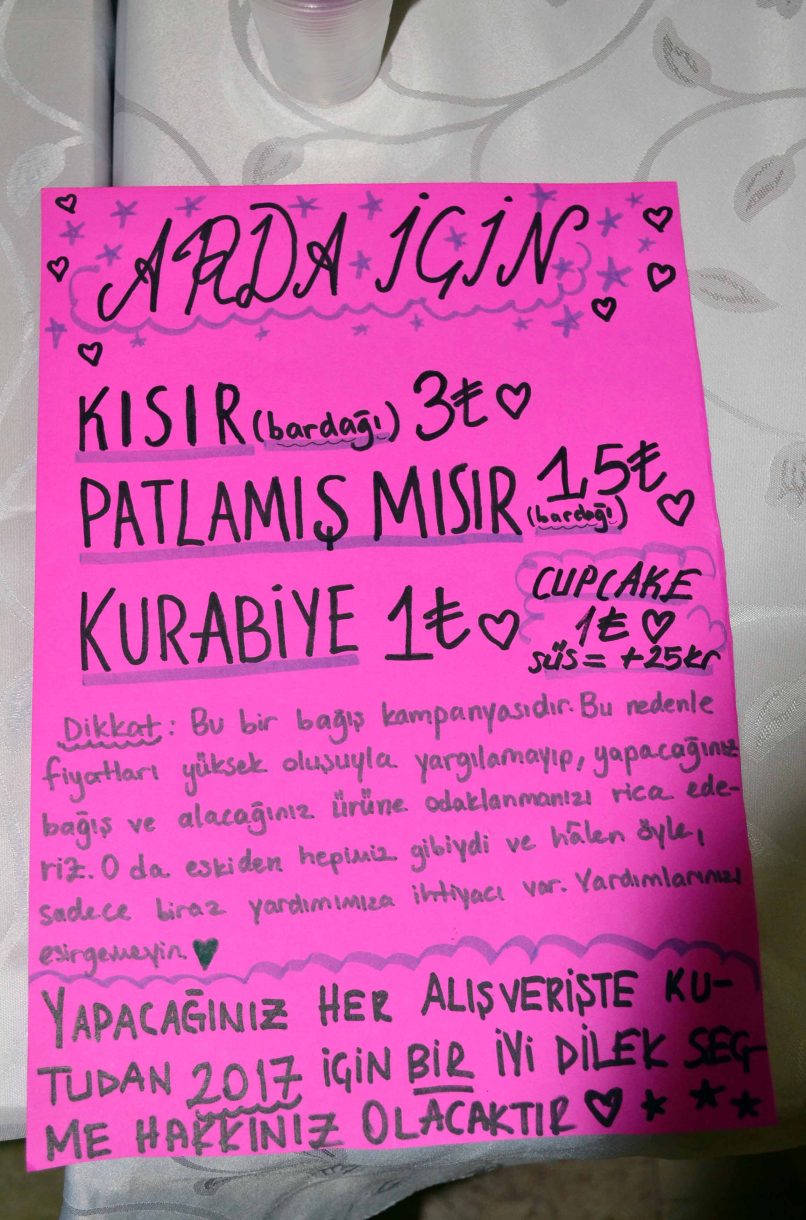 ARDA İÇİN
KISIR (bardağı) 3₺
PATLAMIŞ MISIR 1,5₺
(bardağı)
KURABİYE 1₺
CUPCAKE
1₺
süs = +25kr
Dikkat: Bu bir bağış kampanyasıdır. Bu nedenle
fiyatları yüksek oluşuyla yargılamayıp, yapacağınız
bağış ve alacağınız ürüne odaklanmanızı rica ede-
riz. O da eskiden hepimiz gibiydi ve hâlen öyle,
sadece biraz yardımımıza ihtiyacı var. Yardımlarınızı
esirgemeyin.
YAPACAĞINIZ HER ALIŞVERİŞTE KU-
TUDAN 2017 İÇİN BİR İYİ DİLEK SEÇ-
ME HAKKINIZ OLACAKTIR